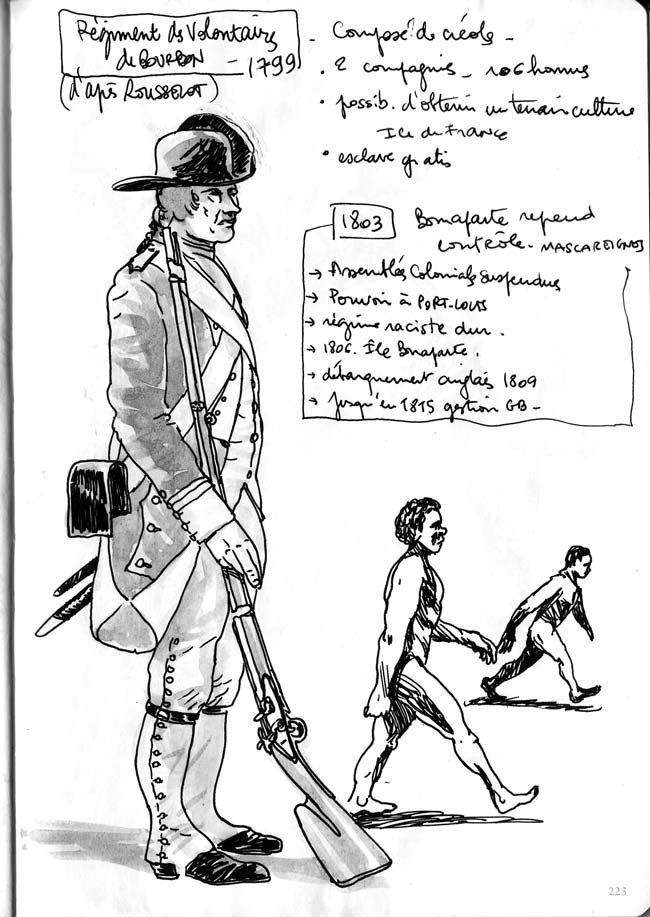 Régiment des Volontaires
de BOURBON — 1799
(d'après ROUSSELOT)
- Composé de créols -
• 2 compagnies - 106 hommes
• possib. d'obtenir un terrain culture
Ile de France
• esclave gratis
1803 Bonaparte reprend
contrôle - MASCAREIGNES
→ Assemblées Coloniales suspendues
→ Pouvoir à PORT-LOUIS
→ régime raciste dur.
→ 1806. Ile Bonaparte.
→ débarquement anglais 1809
→ Jusqu'en 1815 gestion GB -
223